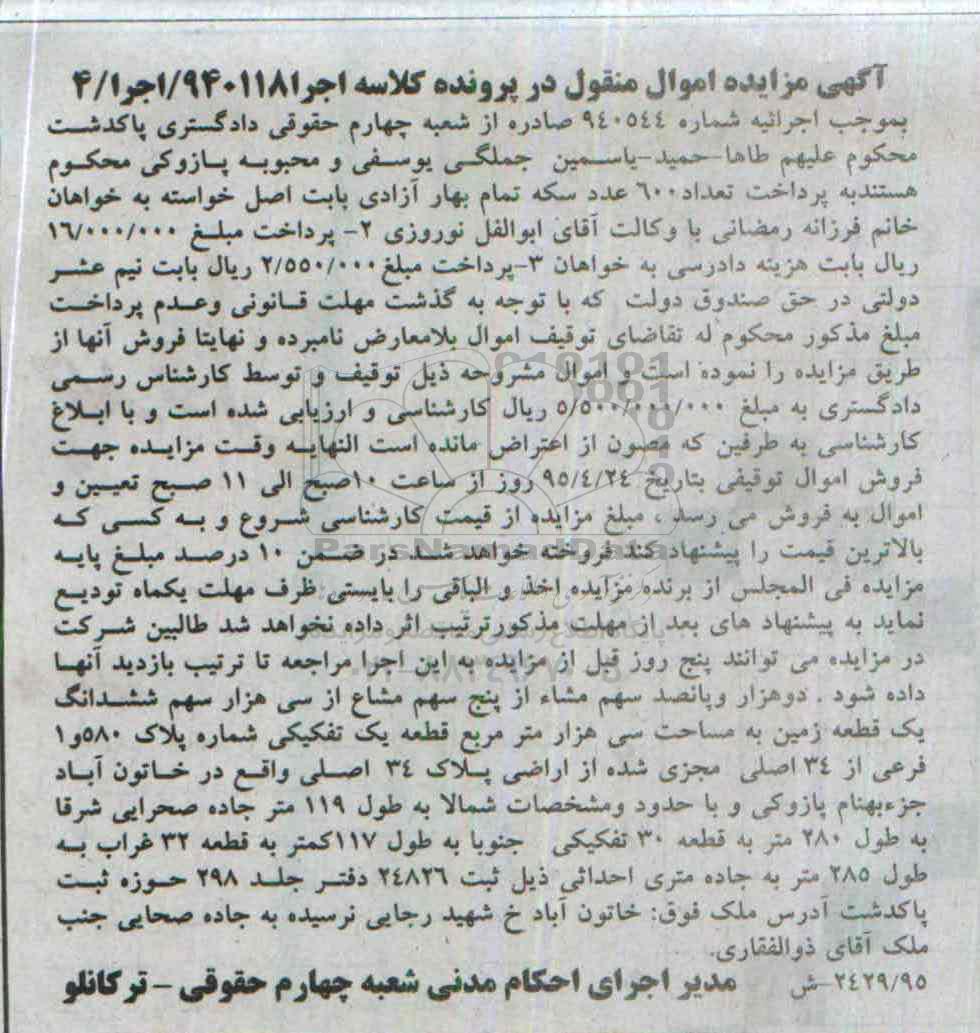 آگهی مزایده اموال منقول در پرونده کلاسه اجرا۹۴۰۱۱۸/اجرا/۴
بموجب اجرائیه شماره ۹٤۰۵٤٤ صادره از شعبه چهارم حقوقی دادگستری پاکدشت
محکوم علیهم طاها-حمید-یاسمین جملگی یوسفی و محبوبه پازوکی محکوم
هستندبه پرداخت تعداد٦۰۰ عدد سکه تمام بهار آزادی بابت اصل خواسته به خواهان
خانم فرزانه رمضانی با وکالت آقای ابوالفل نوروزی ۲- پرداخت مبلغ ۱٦/۰۰۰/۰۰۰
ریال بابت هزینه دادرسی به خواهان ۳-پرداخت مبلغ۲/۵۵۰/۰۰۰ ریال بابت نیم عشر
دولتی در حق صندوق دولت که با توجه به گذشت مهلت قانونی وعدم پرداخت
مبلغ مذکور محکوم له تقاضای توقیف اموال بلامعارض نامبرده و نهایتا فروش آنها از
طریق مزایده را نموده است و اموال مشروحه ذیل توقیف و توسط کارشناس رسمی
دادگستری به مبلغ ۵/۵۰۰/۰۰۰/۰۰۰ ریال کارشناسی و ارزیابی شده است و با ابلاغ
کارشناسی به طرفین که مصون از اعتراض مانده است النهایه وقت مزایده جهت
فروش اموال توقیفی بتاریخ ۹۵/٤/۲٤ روز از ساعت ۱۰صبح الی ۱۱ صبح تعیین و
اموال به فروش می رسد ، مبلغ مزایده از قیمت کارشناسی شروع و به کسی که
بالاترین قیمت را پیشنهاد کند فروخته خواهد شد در ضمن ۱۰ درصد مبلغ پایه
مزایده فی المجلس از برنده مزایده اخذ و الباقی را بایستی ظرف مهلت یکماه تودیع
نماید به پیشنهاد های بعد از مهلت مذکورترتیب اثر داده نخواهد شد طالبین شرکت
در مزایده می توانند پنج روز قبل از مزایده به این اجرا مراجعه تا ترتیب بازدید آنها
داده شود . دوهزار وپانصد سهم مشاء از پنج سهم مشاع از سی هزار سهم ششدانگ
یک قطعه زمین به مساحت سی هزار متر مربع قطعه یک تفکیکی شماره پلاک ۵۸۰و۱
فرعی از ۳٤ اصلی مجزی شده از اراضی پلاک ۳٤ اصلی واقع در خاتون آباد
جزءبهنام پازوکی و با حدود ومشخصات شمالا به طول ۱۱۹ متر جاده صحرایی شرقا
به طول ۲۸۰ متر به قطعه ۳۰ تفکیکی جنوبا به طول ۱۱۷کمتر به قطعه ۳۲ غراب به
طول ۲۸۵ متر به جاده متری احداثی ذیل ثبت ۲٤۸۲٦ دفتر جلد ۲۹۸ حوزه ثبت
پاکدشت آدرس ملک فوق: خاتون آباد خ شهید رجایی نرسیده به جاده صحایی جنب
ملک آقای ذوالفقاری.
۲٤۲۹/۹۵-ش مدیر اجرای احکام مدنی شعبه چهارم حقوقی - ترکانلو
ParsNamadData